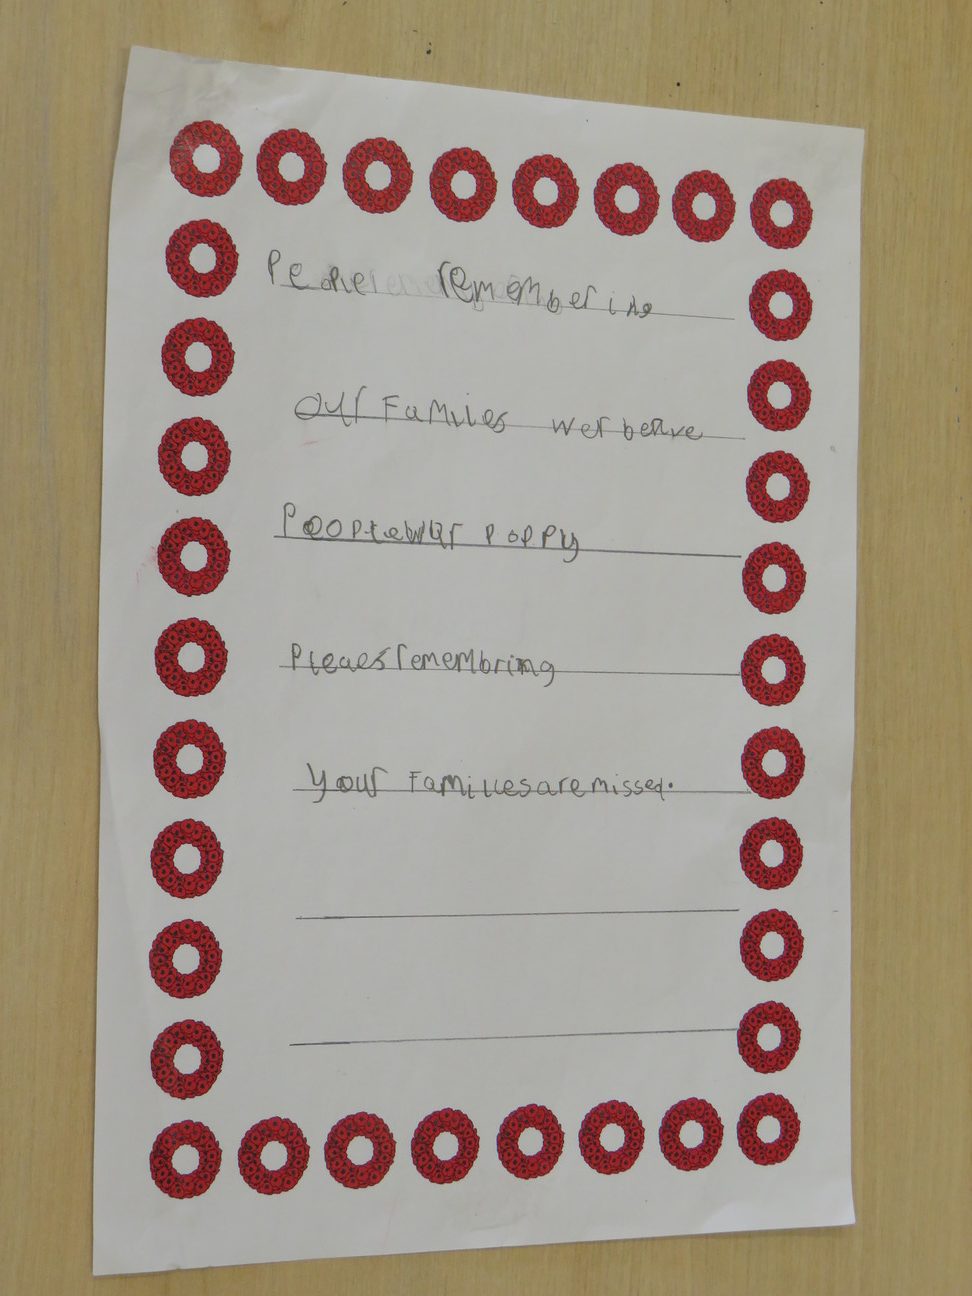 People remembering
Our Familes wer berave
Pooplewar Poppy
Pleaesremembring
your Familiesaremissed.